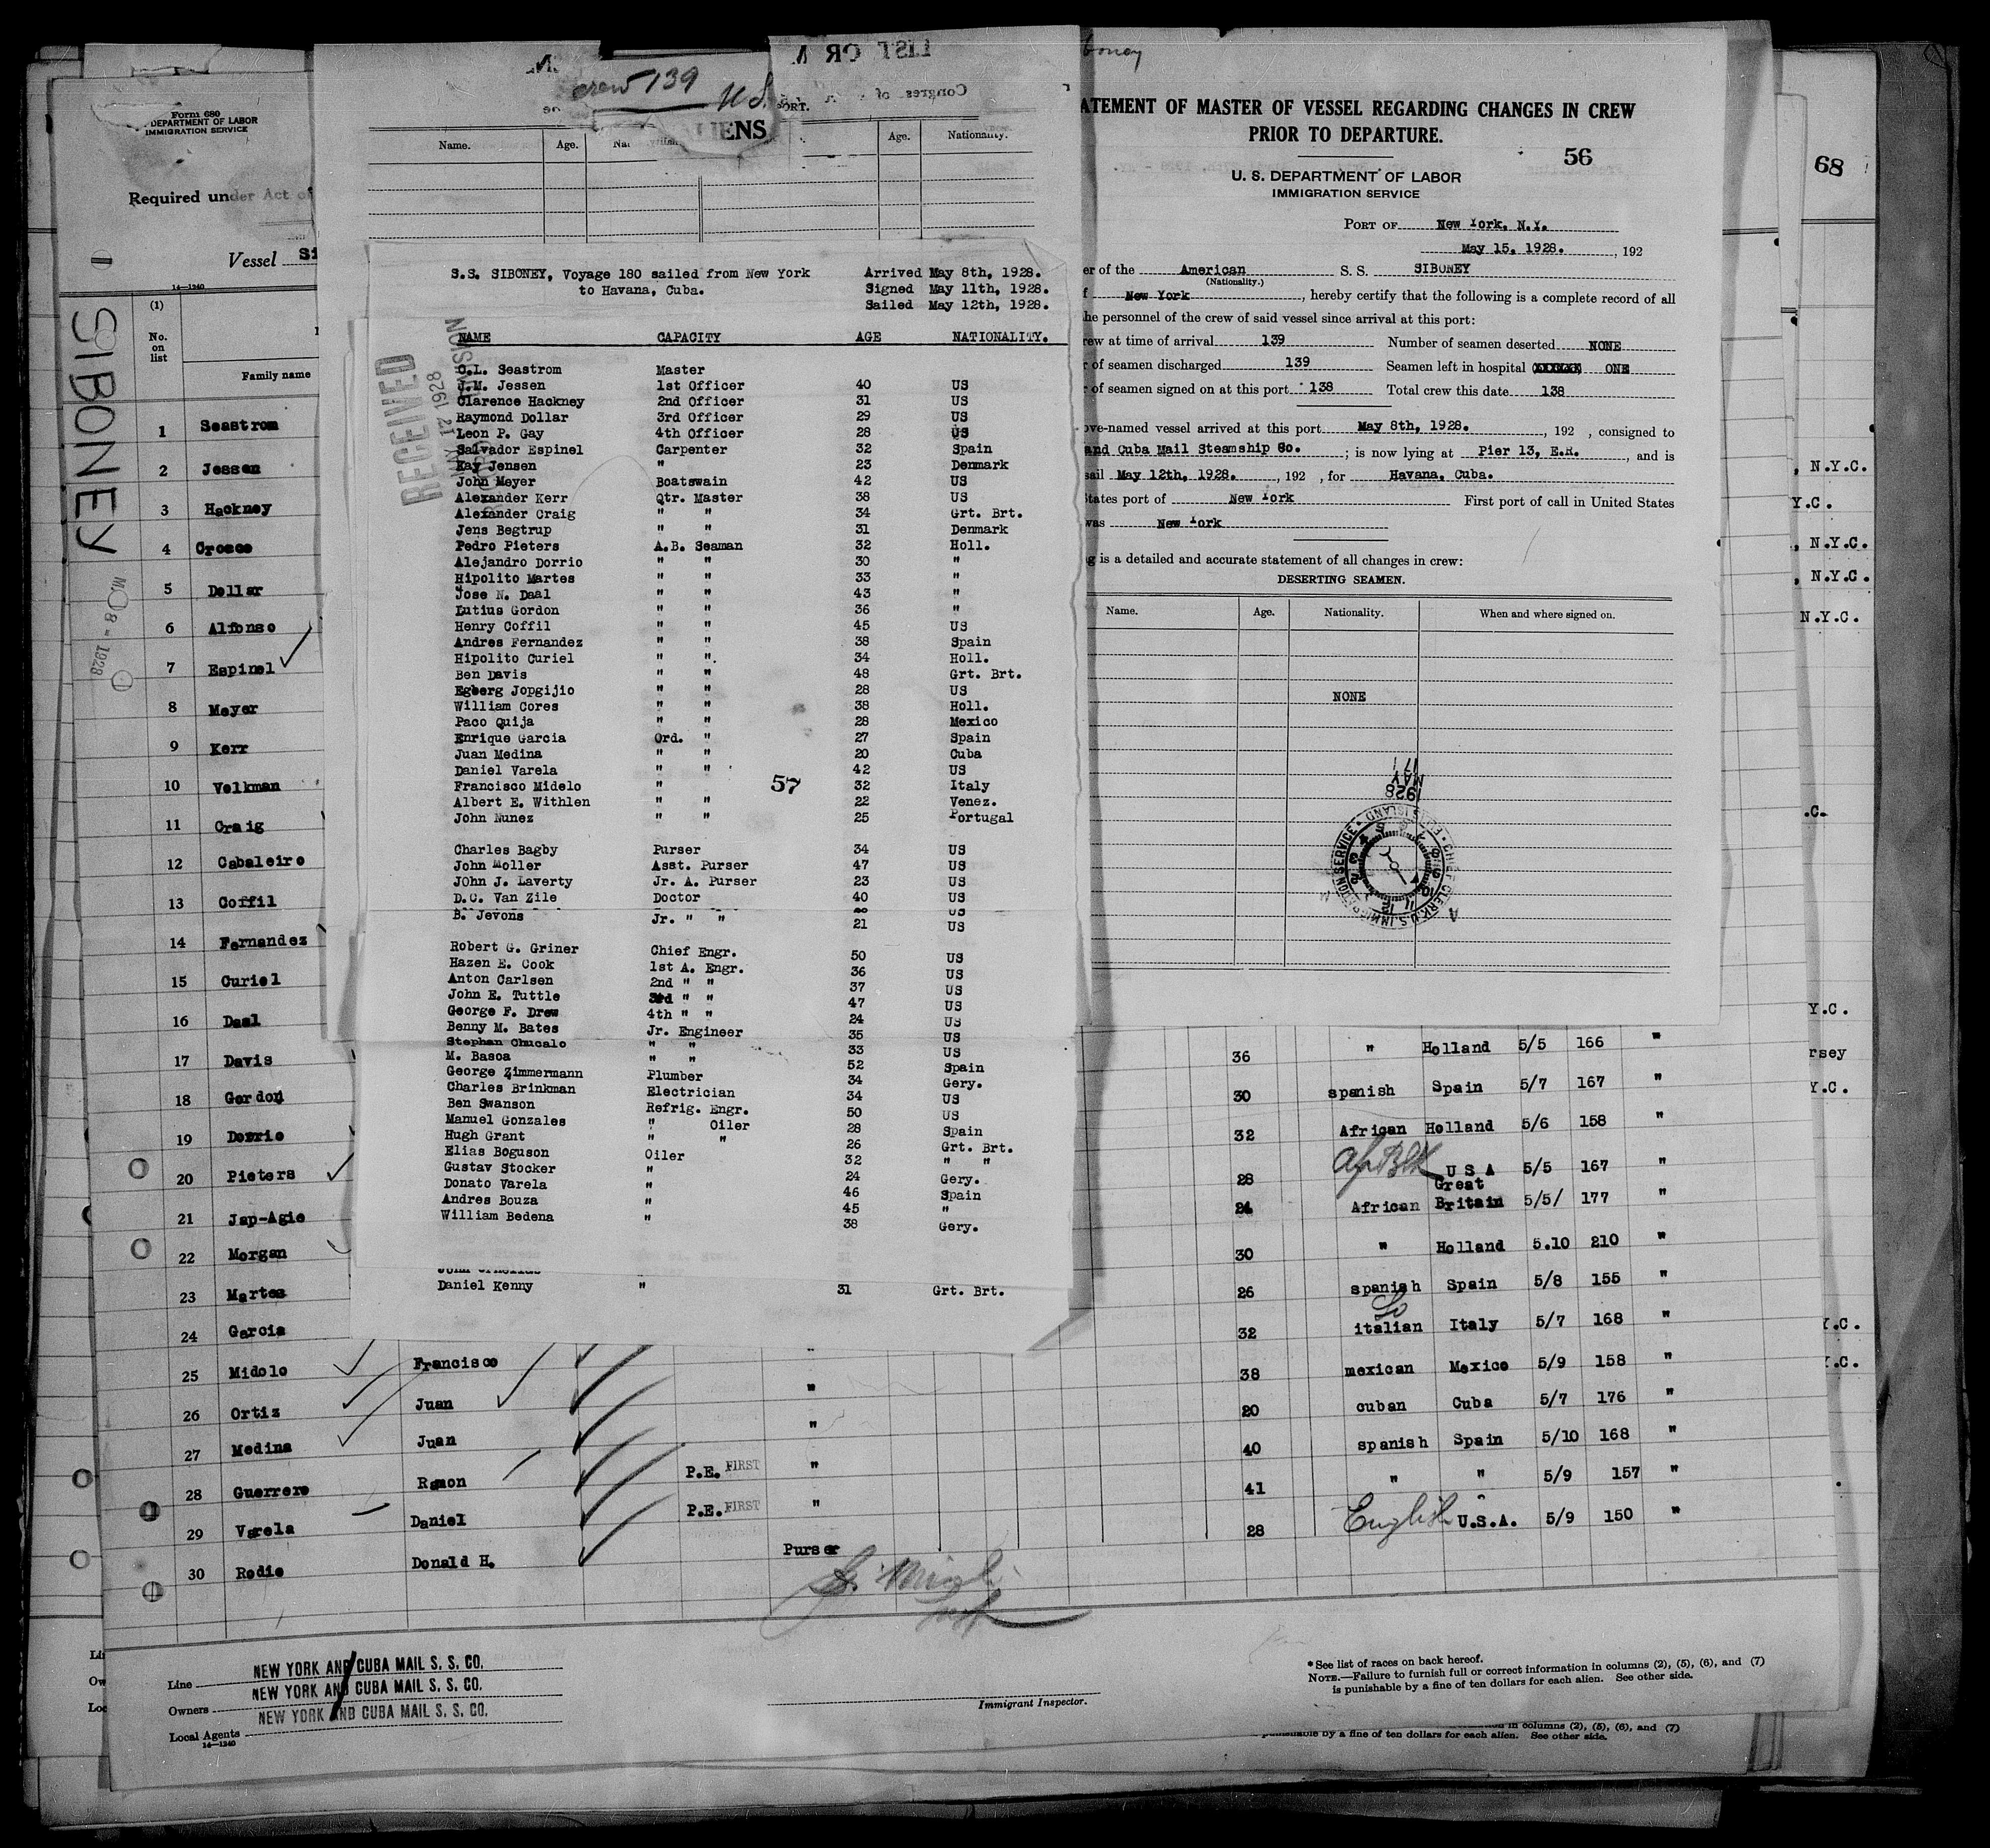 Form 680
DEPARTMENT OF LABOR
IMMIGRATION SERVICE
Required under Act of
Vessel
14—1240
SIBONEY
(1)
No.
on
list
Family name
1 Seastrom
2 Jessen
3 Hackney
4
5 Dollar
6 Alfonso
7 Espinel
8 Meyer
9 Kerr
10 Velkman
11 Craig
12 Cabaleiro
13 Coffil
14 Fernandez
15 Curiel
16 Daal
17 Davis
18 Gordon
19 Dorrio
20 Pieters
21 Jap-Agie
22 Morgan
23 Martes
24 Garcia
25 Midolo Francisco "
26 Ortiz Juan "
27 Medina Juan "
28 Guerrero Ramon P.E. FIRST "
29 Varela Daniel P.E. FIRST "
30 Rodie Donald H. Purser
crew 139 U.S.
LIENS
Name. Age. Age. Nationality.
S.S. SIBONEY, Voyage 180 sailed from New York
to Havana, Cuba.
Arrived May 8th, 1928.
Signed May 11th, 1928.
Sailed May 12th, 1928.
RECEIVED
MAY 17 1928
NAME CAPACITY AGE NATIONALITY.
C.L. Seastrom Master
J.M. Jessen 1st Officer 40 US
Clarence Hackney 2nd Officer 31 US
Raymond Dollar 3rd Officer 29 US
Leon P. Gay 4th Officer 28 US
Salvador Espinel Carpenter 32 Spain
Kay Jensen " 23 Denmark
John Meyer Boatswain 42 US
Alexander Kerr Qtr. Master 38 US
Alexander Craig " " 34 Grt. Brt.
Jens Begtrup " " 31 Denmark
Pedro Pieters A.B. Seaman 32 Holl.
Alejandro Dorrio " " 30 "
Hipolito Martes " " 33 "
Jose N. Daal " " 43 "
Lutius Gordon " " 36 "
Henry Coffil " " 45 US
Andres Fernandez " " 38 Spain
Hipolito Curiel " ". 34 Holl.
Ben Davis " " 48 Grt. Brt.
Egberg Jopgijio " " 28 US
William Cores " " 38 Holl.
Paco Quija " " 28 Mexico
Enrique Garcia Ord. " 27 Spain
Juan Medina " " 20 Cuba
Daniel Varela " " 42 US
Francisco Midelo " 32 Italy
Albert E. Withlen " " 22 Venez.
John Nunez " " 25 Portugal
57
Charles Bagby Purser 34 US
John Moller Asst. Purser 47 US
John J. Laverty Jr. A. Purser 23 US
D.C. Van Zile Doctor 40 US
B. Jevons Jr. " " 21 US
Robert G. Griner Chief Engr. 50 US
Hazen E. Cook 1st A. Engr. 36 US
Anton Carlsen 2nd " " 37 US
John E. Tuttle 3rd " " 47 US
George F. Drew 4th " " 24 US
Benny M. Bates Jr. Engineer 35 US
Stephan Chucalo " " 33 US
M. Basoa " " 52 Spain
George Zimmermann Plumber 34 Gery.
Charles Brinkman Electrician 34 US
Ben Swanson Refrig. Engr. 50 US
Manuel Gonzales " Oiler 28 Spain
Hugh Grant " " 26 Grt. Brt.
Elias Boguson Oiler 32 " "
Gustav Stocker " 24 Gery.
Donato Varela " 46 Spain
Andres Bouza " 45 "
William Bedena " 38 Gery.
Daniel Kenny " 31 Grt. Brt.
ATEMENT OF MASTER OF VESSEL REGARDING CHANGES IN CREW
PRIOR TO DEPARTURE.
56
U. S. DEPARTMENT OF LABOR
IMMIGRATION SERVICE
PORT OF New York, N.Y.
May 15, 1928. , 192
er of the American S. S. SIBONEY
(Nationality.)
New York , hereby certify that the following is a complete record of all
he personnel of the crew of said vessel since arrival at this port:
rew at time of arrival 139 Number of seamen deserted NONE
r of seamen discharged 139 Seamen left in hospital ONE
r of seamen signed on at this port 138 Total crew this date 138
ove-named vessel arrived at this port May 8th, 1928. , 192 , consigned to
and Cuba Mail Steamship Co. ; is now lying at Pier 13, E.R. , and is
sail May 12th, 1928. , 192 , for Havana, Cuba.
States port of New York First port of call in United States
was New York
g is a detailed and accurate statement of all changes in crew:
DESERTING SEAMEN.
Name. Age. Nationality. When and where signed on.
NONE
1928
MAY
17
68
, N.Y.C.
Y.C.
, N.Y.C.
, N.Y.C.
N.Y.C.
.C.
Y.C.
rsey
Y.C.
Y.C.
Y.C.
36 " Holland 5/5 166 "
30 spanish Spain 5/7 167 "
32 African Holland 5/6 158 "
28 Af Blk U S A 5/5 167 "
24 African Great Britain 5/5/ 177 "
30 " Holland 5.10 210 "
26 spanish Spain 5/8 155 "
32 So italian Italy 5/7 168 "
38 mexican Mexico 5/9 158 "
20 cuban Cuba 5/7 176 "
40 spanish Spain 5/10 168 "
41 " " 5/9 157 "
28 English U.S.A. 5/9 150 "
Line NEW YORK AND CUBA MAIL S. S. CO.
Owners NEW YORK AND CUBA MAIL S. S. CO.
Local Agents NEW YORK AND CUBA MAIL S. S. CO.
14—1240
Immigrant Inspector.
*See list of races on back hereof.
NOTE.—Failure to furnish full or correct information in columns (2), (5), (6), and (7)
is punishable by a fine of ten dollars for each alien. See other side.
in columns (2), (5), (6), and (7)
punishable by a fine of ten dollars for each alien. See other side.